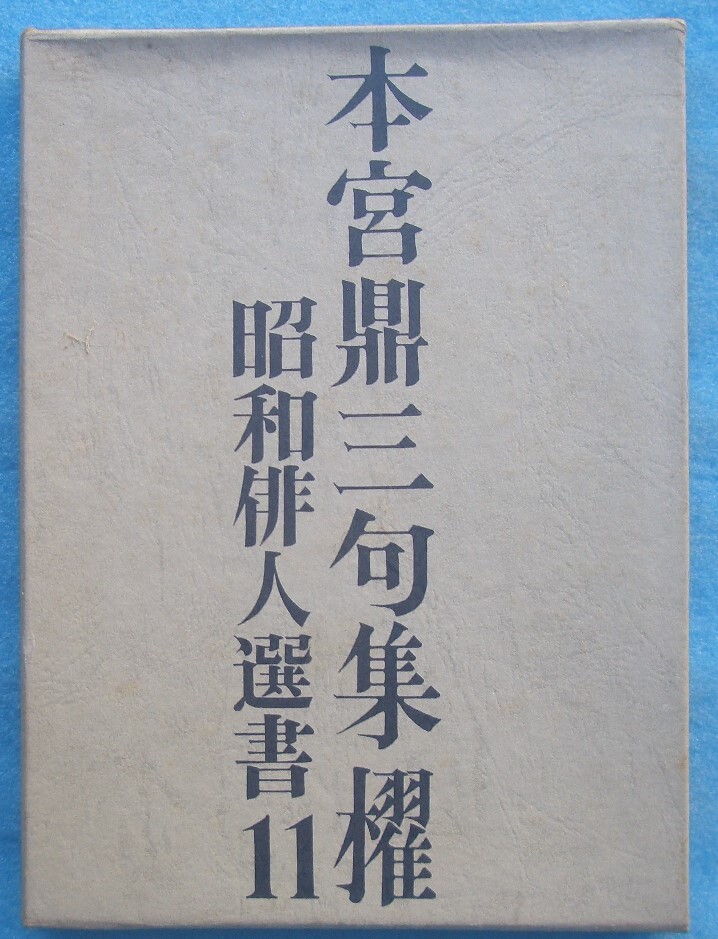 本宮鼎三句集櫂
昭和俳人選書11